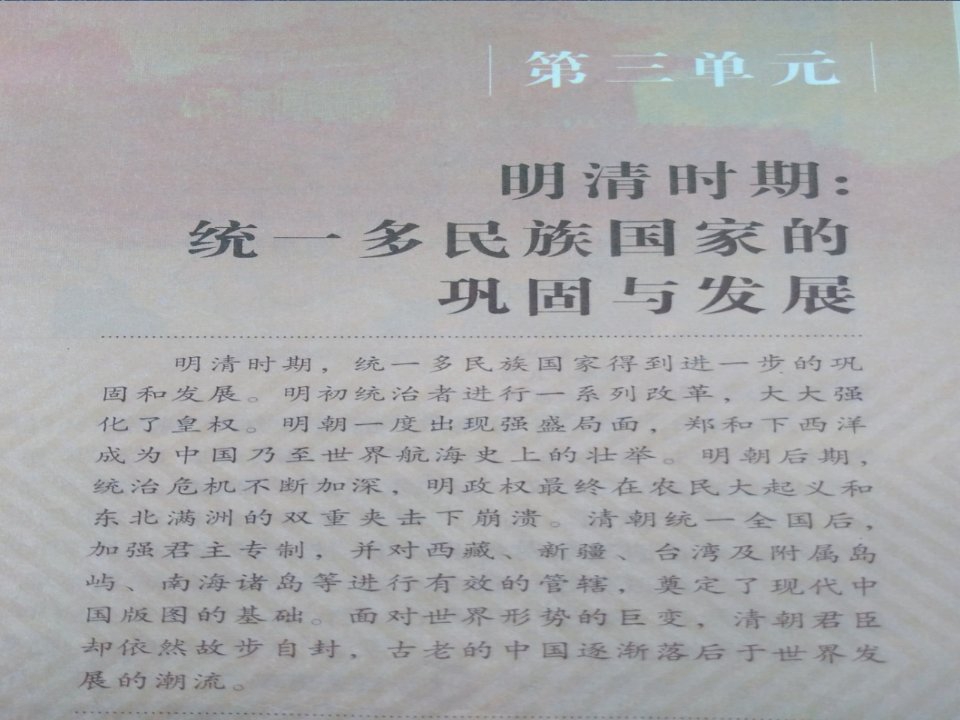 第三单元
明清时期：
统一多民族国家的
巩固与发展
明清时期，统一多民族国家得到进一步的巩
固和发展。明初统治者进行一系列改革，大大强
化了皇权。明朝一度出现强盛局面，郑和下西洋
成为中国乃至世界航海史上的壮举。明朝后期，
统治危机不断加深，明政权最终在农民大起义和
东北满洲的双重夹击下崩溃。清朝统一全国后，
加强君主专制，并对西藏、新疆、台湾及附属岛
屿、南海诸岛等进行有效的管辖，奠定了现代中
国版图的基础。面对世界形势的巨变，清朝君臣
却依然故步自封，古老的中国逐渐落后于世界发
展的潮流。